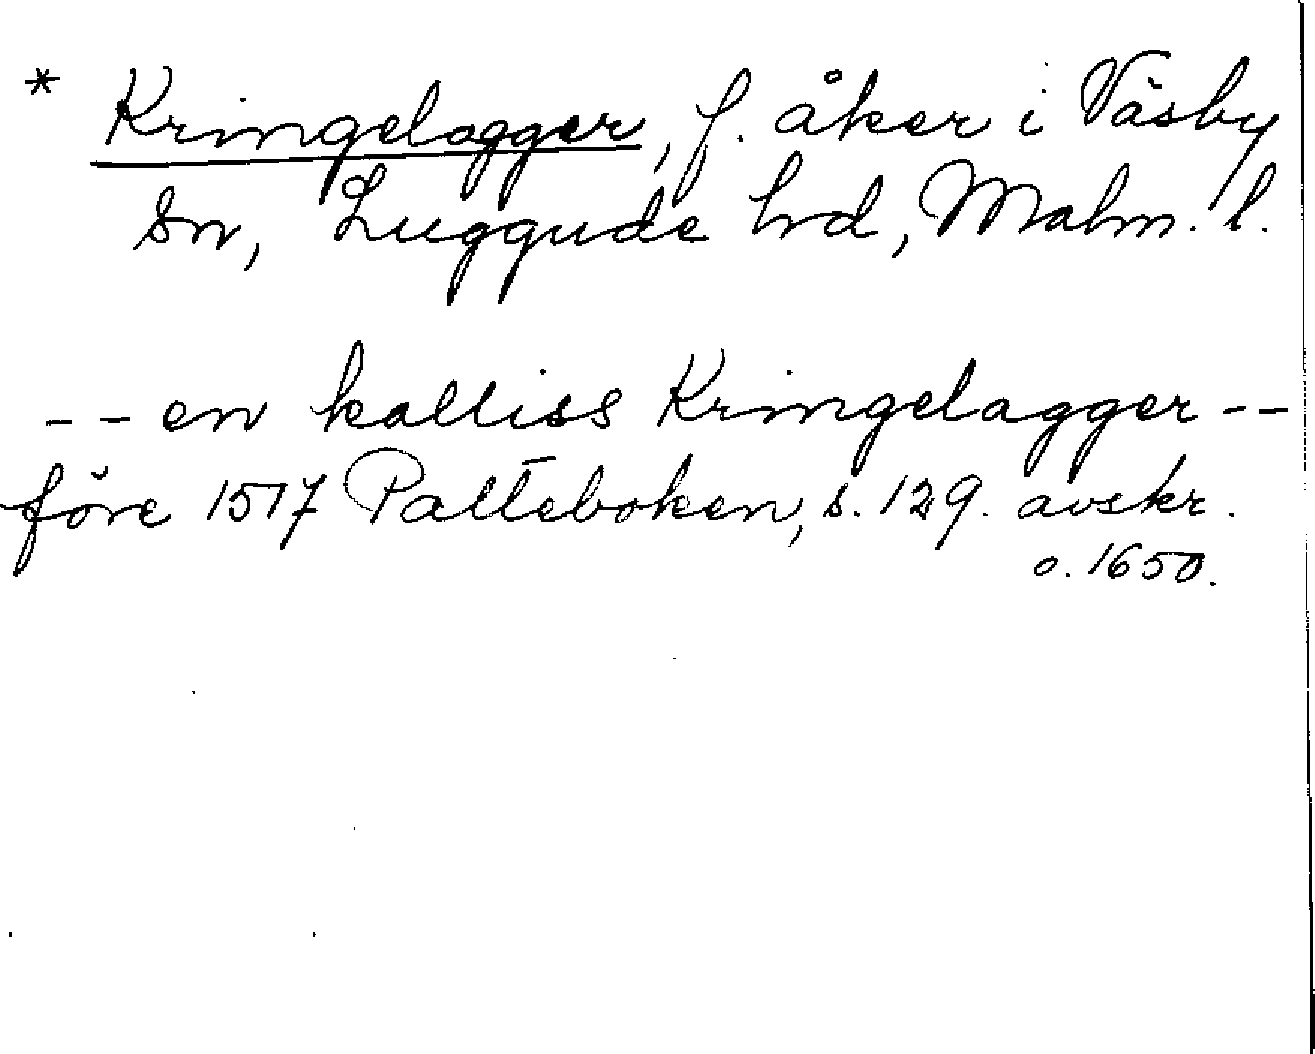 * Kringelagger, f. åker i Väsby
sn, Luggude hd, Malm. l.
-- en kalliss Kringelagger --
före 1517 Palteboken, s. 129. avskr.
o. 1650.